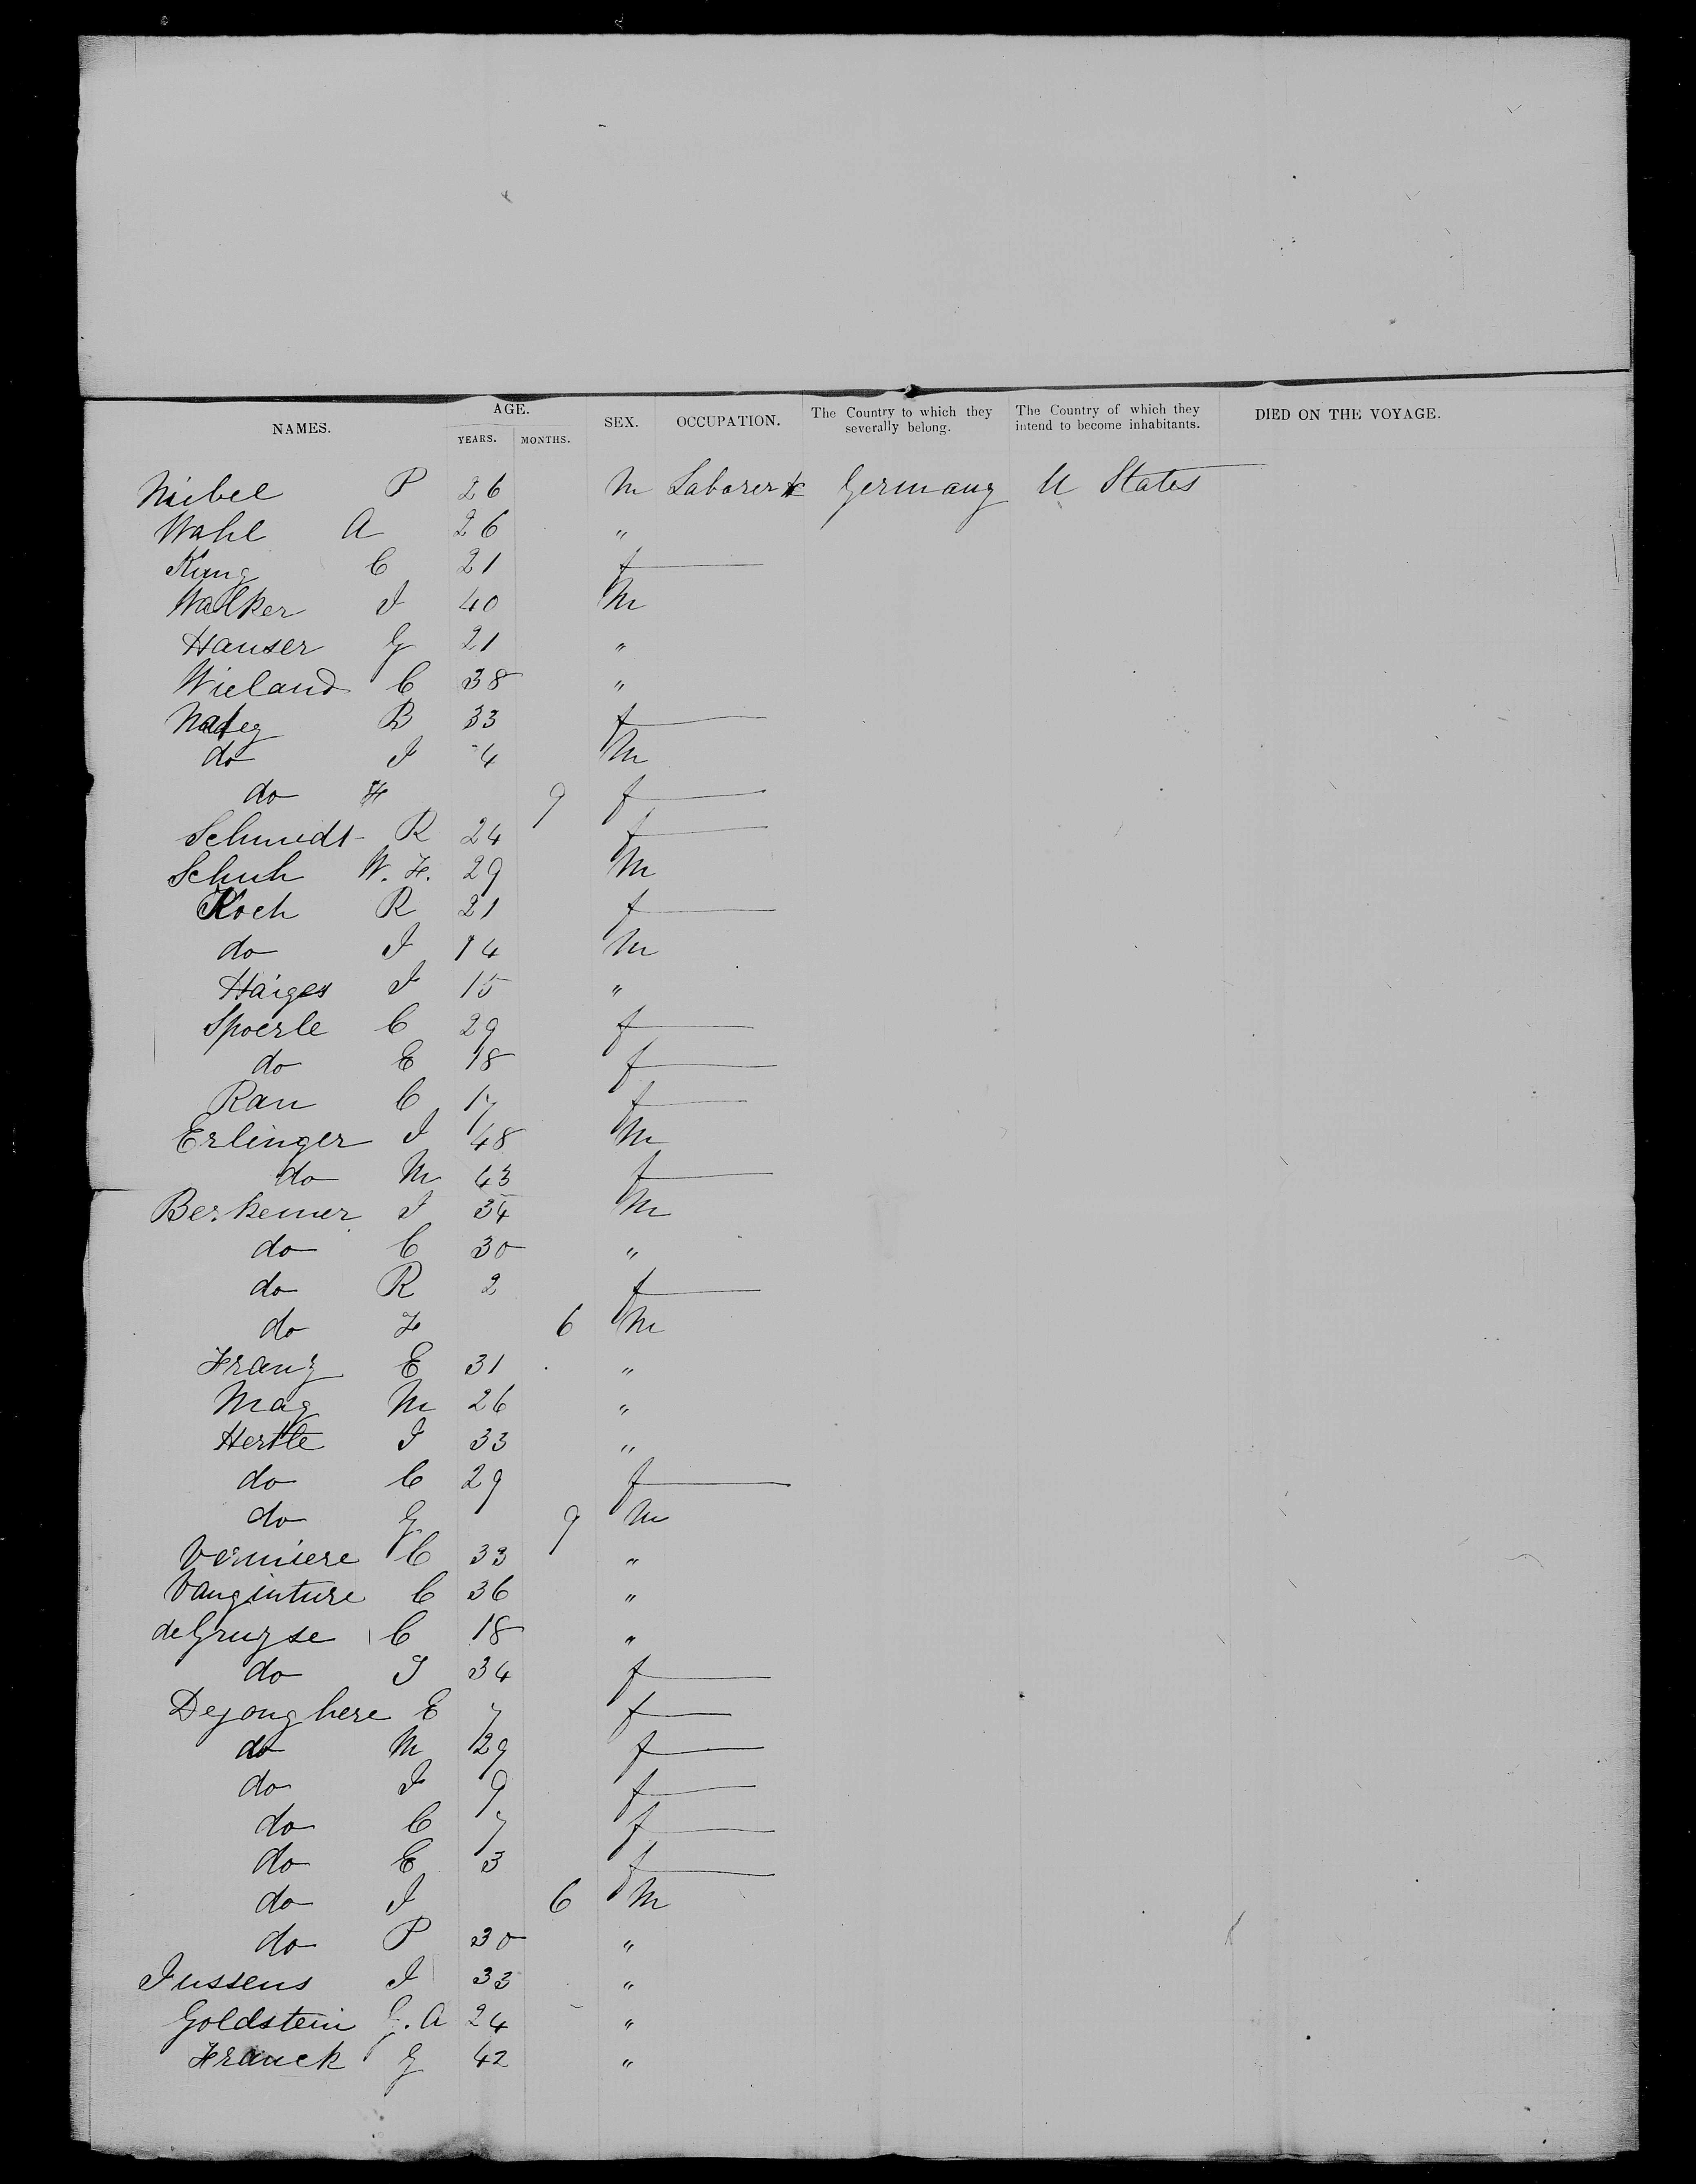 NAMES. AGE. SEX. OCCUPATION. The Country to which they severally belong. The Country of which they intend to become inhabitants. DIED ON THE VOYAGE.
YEARS. MONTHS.
Niebel P 26 M Laborer Germany U States
Wahl A 26 "
Kung C 21 f
Walker J 40 M
Hauser G 21 "
Wieland C 38 "
Nafey B 33 f
do J 4 M
do H 9 f
Schmidt R 24 f
Schuh W. F. 29 M
Koch R 21 f
do J 14 M
Haiges J 15 "
Spoerle C 29 f
do E 18 f
Rau C 17 f
Erlinger J 48 M
do M 43 f
Berkemer J 34 M
do C 30 "
do R 2 f
do F 6 M
Franz E 31 "
May M 26 "
Hertle J 33 "
do C 29 f
do G 9 M
Vermiere C 33 "
Vanginture C 36 "
de Gruyse C 18 "
do J 34 f
Dejonghere E 7 f
do M 29 f
do J 9 f
do C 7 f
do E 3 f
do J 6 M
do P 30 "
Jussens J 33 "
Goldstein G. A 24 "
Franck G 42 "